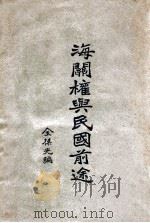 海關權與民國前途
金葆光編